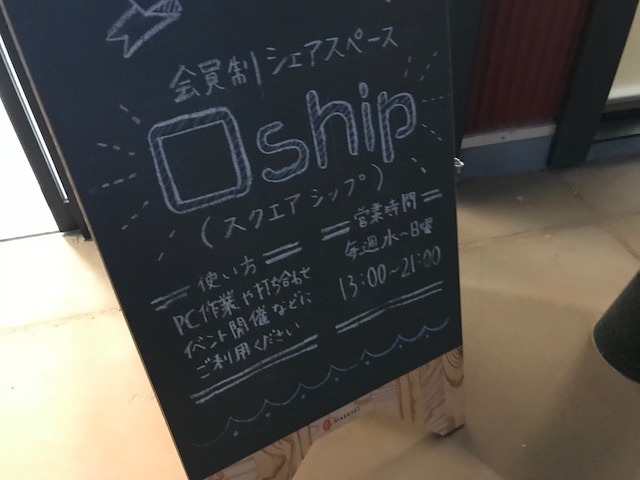 会員制シェアスペース
□ship
(スクエアシップ)
使い方
PC作業や打ち合わせ
イベント開催などに
ご利用ください
営業時間
毎週水〜日曜
13:00〜21:00